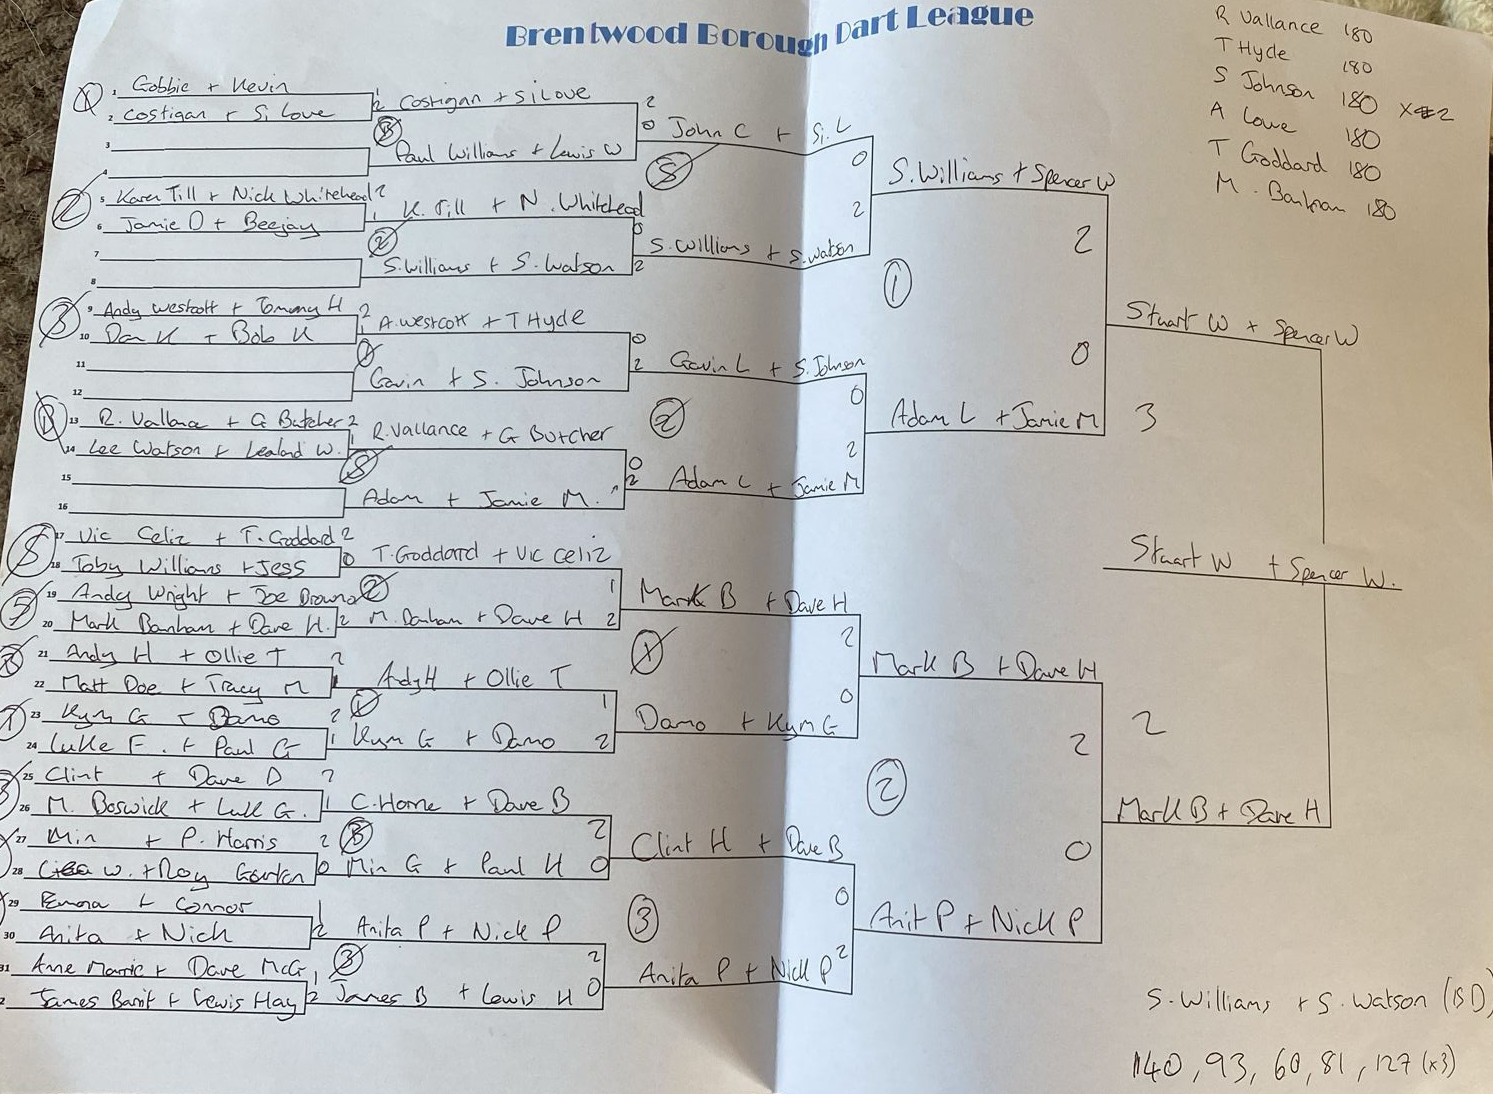 Brentwood Borough Dart League
R Vallance 180
T Hyde 180
S Johnson 180 x 2
A Lowe 180
T Goddard 180
M. Banham 180
1 1 Gobbie + Kevin 1
2 Costigan + Si Love 2
3
4
2 5 Karen Till + Nick Whitehead 2
6 Jamie D + Beejay 1
7
8
3 9 Andy Westcott + Tommy H 2
10 Dan K + Bob K 1
11
12
13 R. Vallance + G Butcher 2
14 Lee Watson + Lealand W. 1
15
16
17 Vic Celiz + T. Goddard 2
18 Toby Williams + Jess 0
19 Andy Wright + Joe Browne
5 20 Mark Banham + Dave H. 2
21 Andy H + Ollie T 2
22 Matt Doe + Tracy M 1
23 Kym G + Damo 2
24 Luke F. + Paul G 1
25 Clint + Dave D 2
26 M. Boswick + Luke G. 1
27 Min + P. Harris 2
28 W. + Roy 0
29 Emma + Connor 1
30 Anita + Nick 2
31 Anne Marie + Dave McG 1
2 James Barit + Lewis Hay 2
Costigan + Si Love 2
Paul Williams + Lewis W 0
K. Till + N. Whitehead 0
2
S. Williams + S. Watson 2
A. Westcott + T Hyde 0
1
Gavin + S. Johnson 2
R. Vallance + G Butcher 0
Adam + Jamie M. 2
T. Goddard + Vic Celiz 1
2
M. Banham + Dave H 2
Andy H + Ollie T 1
1
Kym G + Damo 2
C. Horne + Dave B 2
3
Min G + Paul H 0
Anita P + Nick P 2
3
James B + Lewis H 0
John C + Si. L 0
S. Williams + S. Watson 2
Gavin L + S. Johnson 0
2
Adam L + Jamie M 2
Mark B + Dave H 2
1
Damo + Kym G 0
Clint H + Dave B 0
3
Anita P + Nick P 2
S. Williams + Spencer W 2
1
Adam L + Jamie M 0
Mark B + Dave H 2
2
Anit P + Nick P 0
Stuart W + Spencer W
3
Stuart W + Spencer W.
2
Mark B + Dave H
S. Williams + S. Watson (15D)
140, 93, 60, 81, 127 (x3)